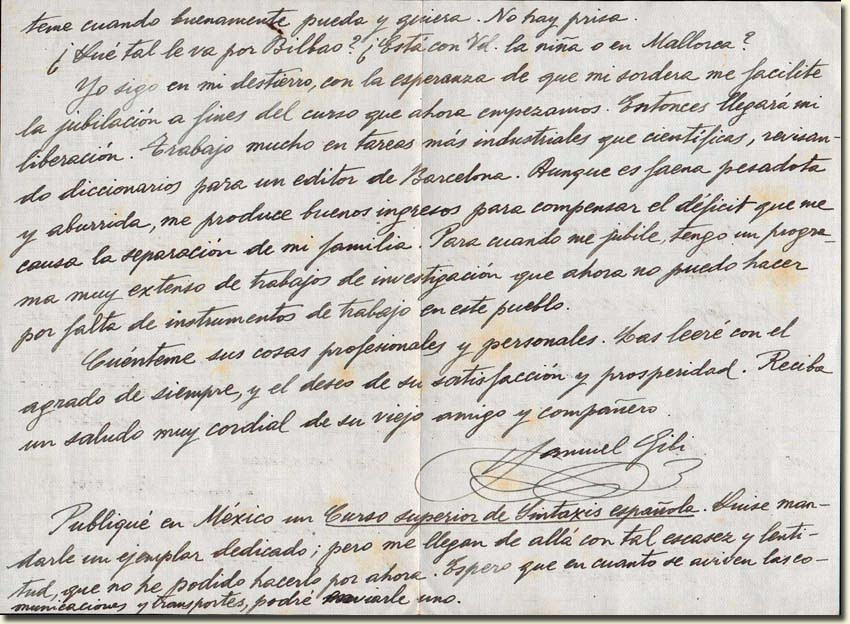 teme cuando buenamente pueda y quiera. No hay prisa.
¿Qué tal le va por Bilbao? ¿Está con Vd. la niña o en Mallorca?
Yo sigo en mi destierro, con la esperanza de que mi sordera me facilite
la jubilación a fines del curso que ahora empezamos. Entonces llegará mi
liberación. Trabajo mucho en tareas más industriales que científicas, revisan-
do diccionarios para un editor de Barcelona. Aunque es faena pesadota
y aburrida, me produce buenos ingresos para compensar el déficit que me
causa la separación de mi familia. Para cuando me jubile, tengo un progra-
ma muy extenso de trabajos de investigación que ahora no puedo hacer
por falta de instrumentos de trabajo en este pueblo.
Cuénteme sus cosas profesionales y personales. Las leeré con el
agrado de siempre, y el deseo de su satisfacción y prosperidad. Reciba
un saludo muy cordial de su viejo amigo y compañero.
Samuel Gili
Publiqué en México un Curso superior de Sintaxis española. Quise man-
darle un ejemplar dedicado; pero me llegan de allá con tal escasez y lenti-
tud, que no he podido hacerlo por ahora. Espero que en cuanto se aviven las co-
municaciones y transportes, podré enviarle uno.